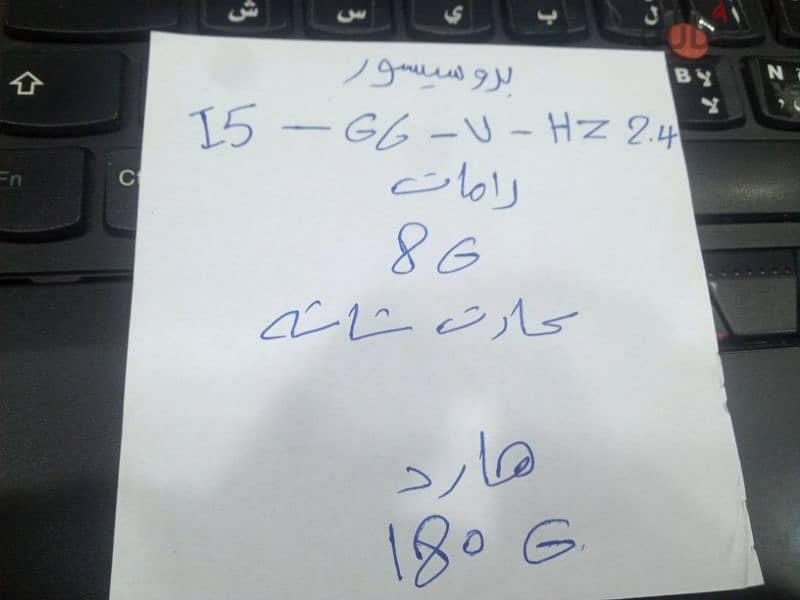 بروسيسور
I5 – G6 – U – HZ 2.4
رامات
8 G
كارت شاشه
هارد
180 G
ش
س
ي
ب
ل
B لا
N
Fn